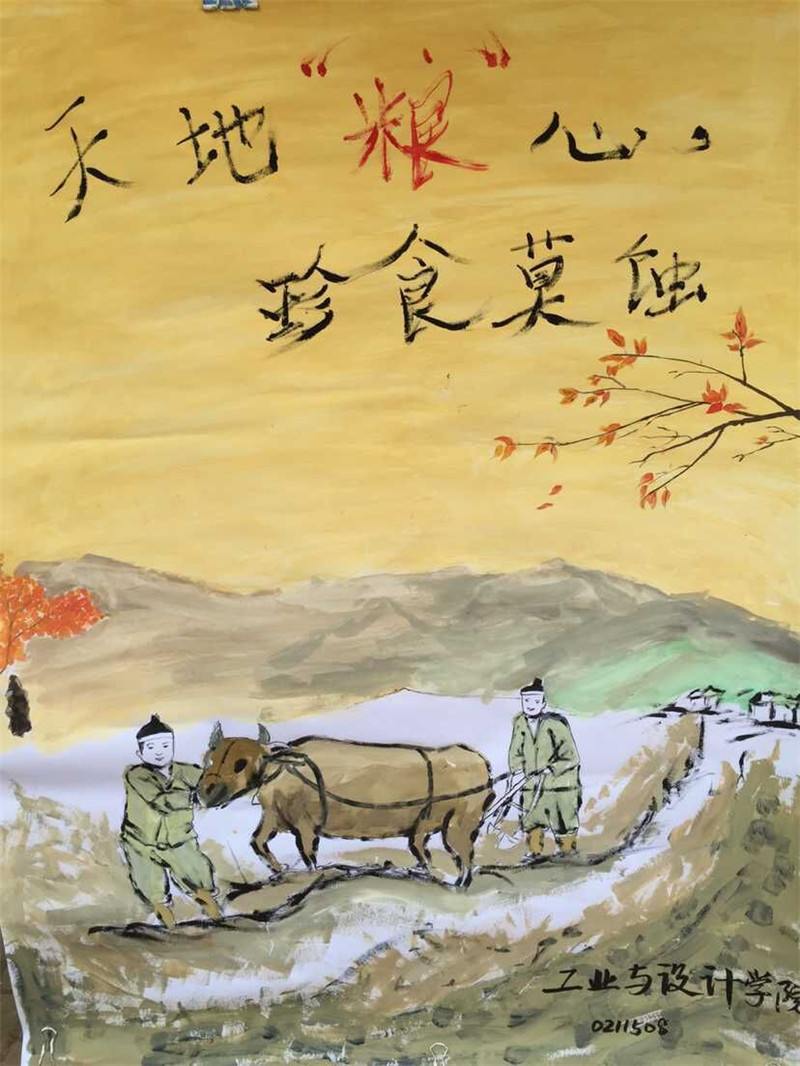 天地“粮”心，
珍食莫蚀
工业与设计学院
0211508